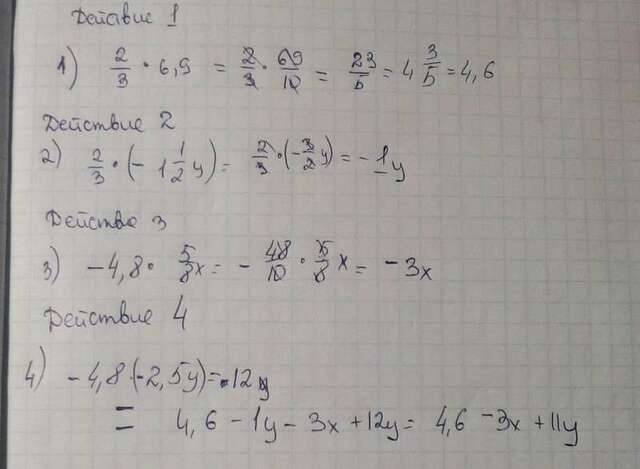 Действие 1
1) 2/3 · 6,9 = 2/3 · 69/10 = 23/5 = 4 3/5 = 4,6
Действие 2
2) 2/3 · (- 1 1/2 y) = 2/3 · (- 3/2 y) = - 1y
Действо 3
3) - 4,8 · 5/8 x = - 48/10 · 5/8 x = - 3x
Действие 4
4) - 4,8 · (-2,5y) = 12y
= 4,6 - 1y - 3x + 12y = 4,6 - 3x + 11y